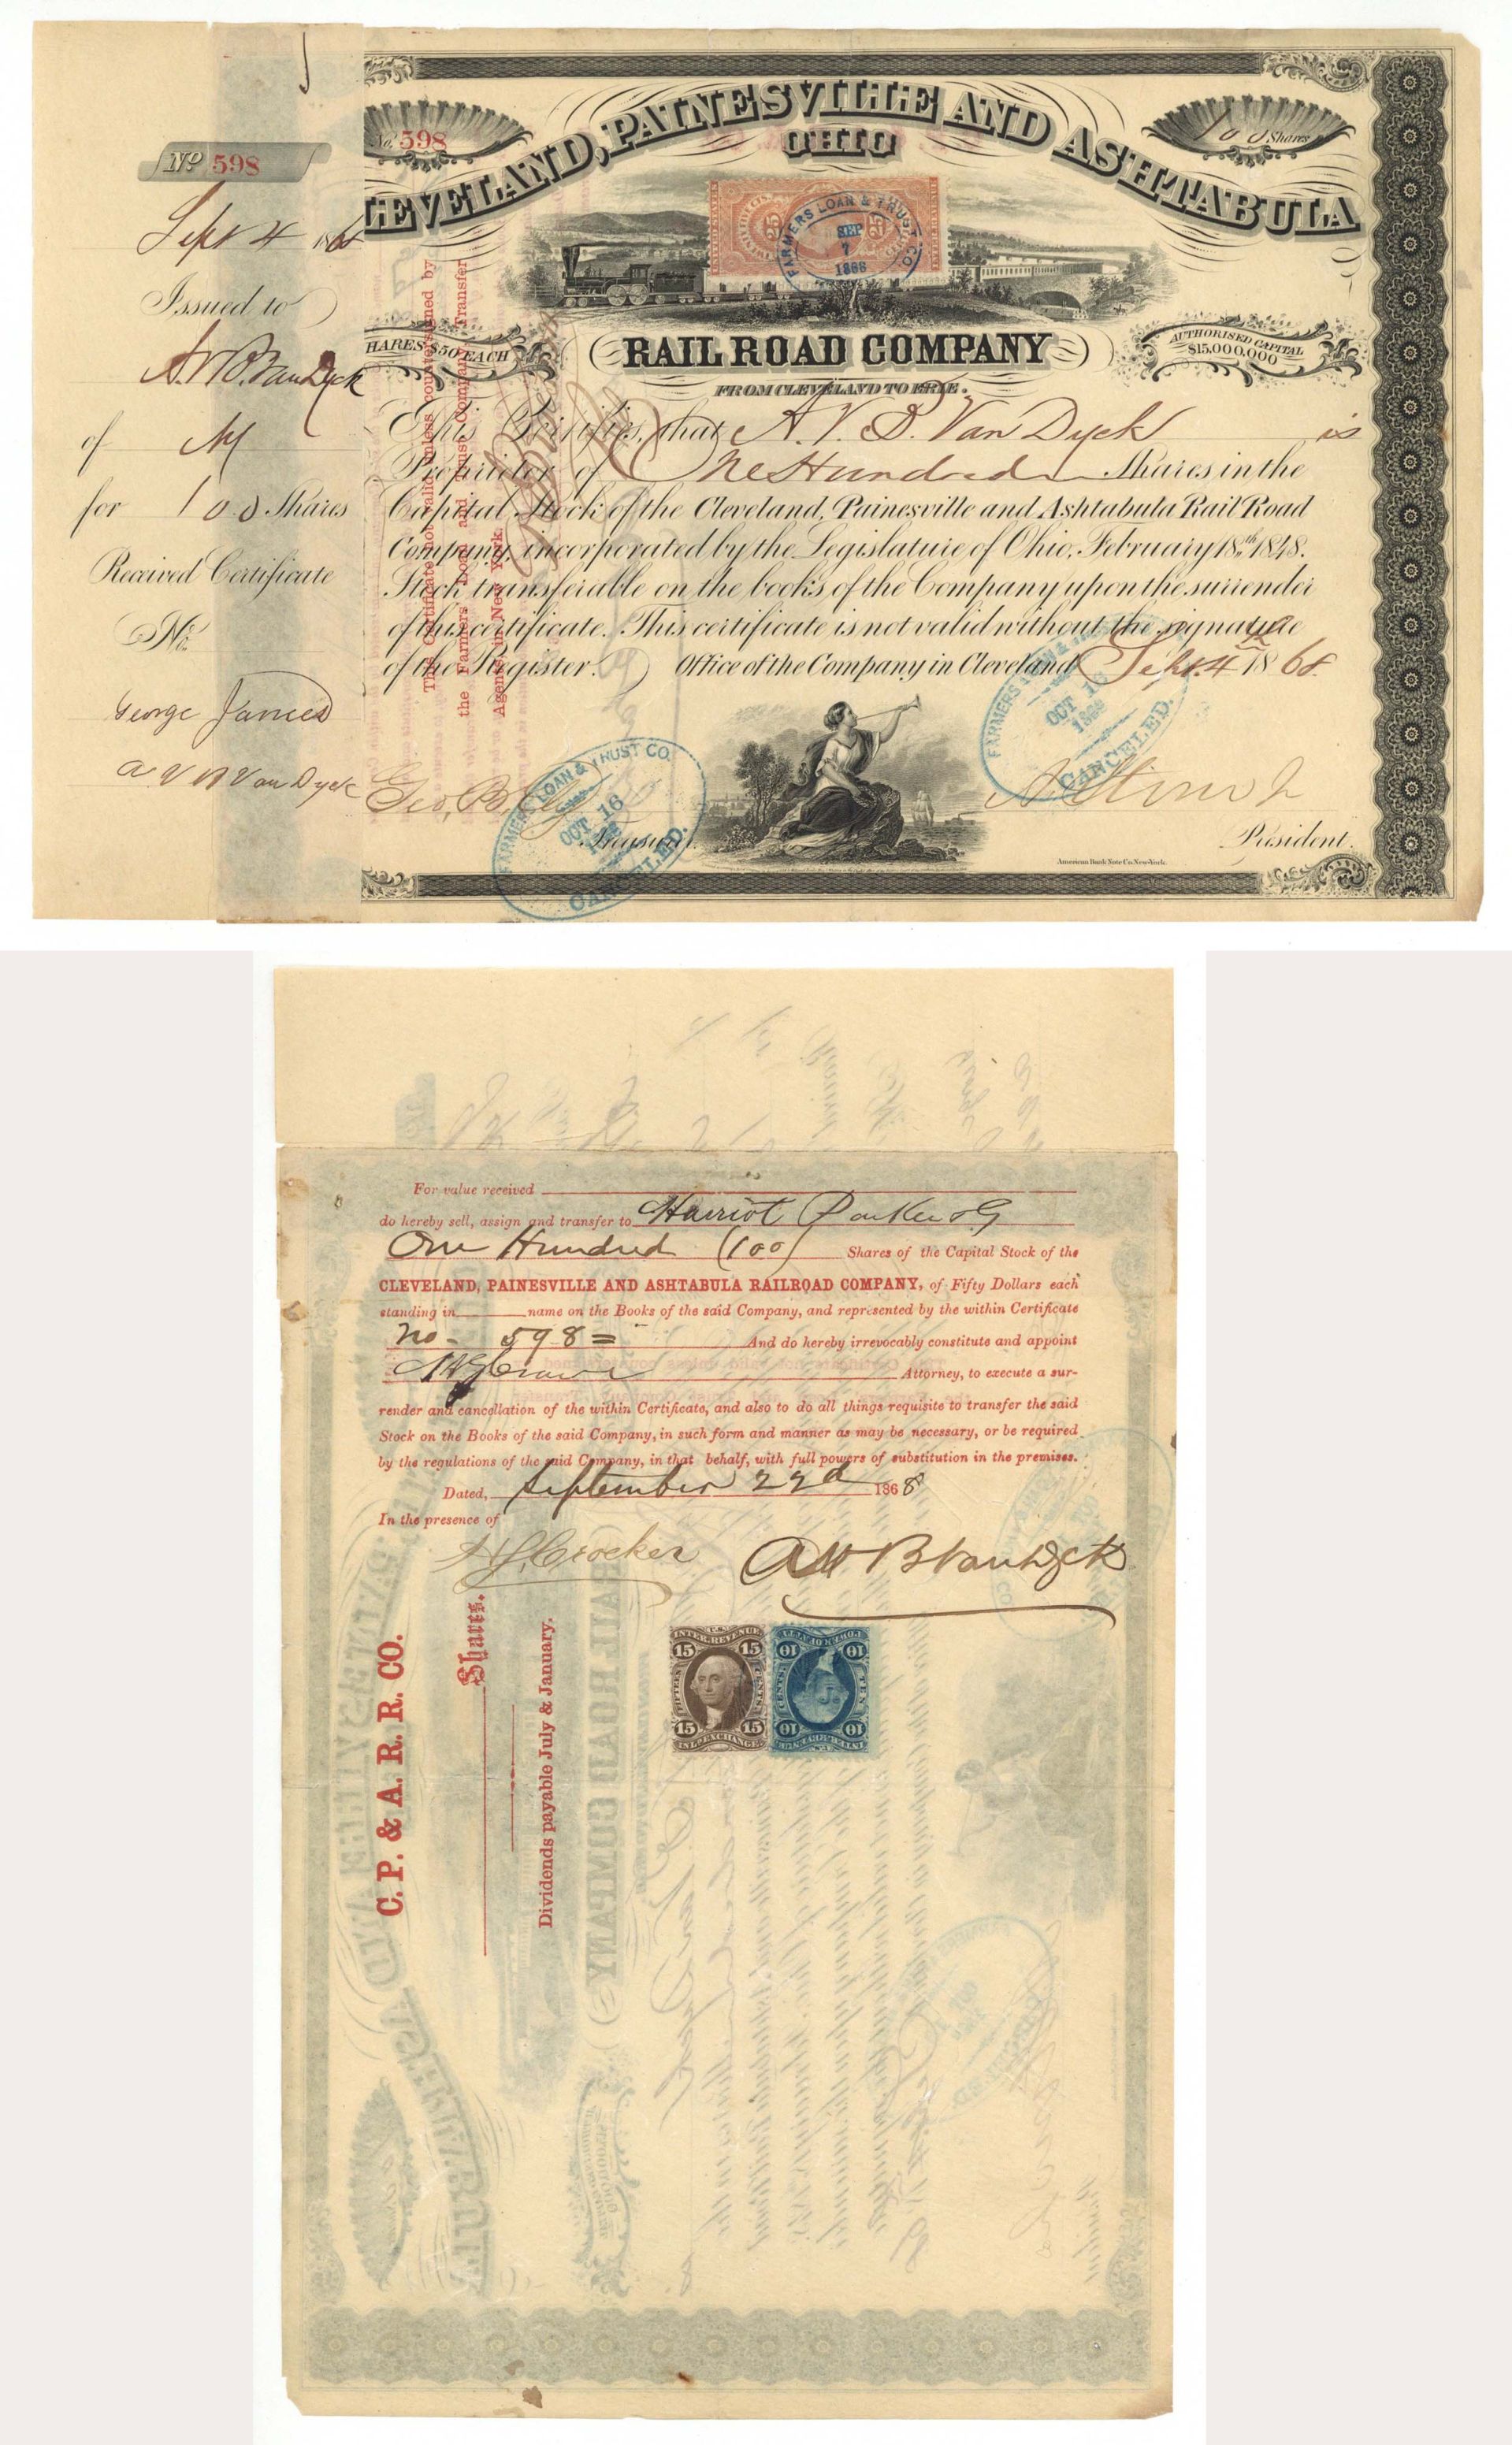 No. 598
100 Shares
CLEVELAND, PAINESVILLE AND ASHTABULA
OHIO
UNITED STATES
25
25
FARMERS LOAN & TRUST CO.
SEP
7
1868
SHARES $50 EACH
RAIL ROAD COMPANY
AUTHORISED CAPITAL
$15,000,000
FROM CLEVELAND TO ERIE.
This Certifies, that A. V. B. Van Dyck is
Proprietor of One Hundred Shares in the
Capital Stock of the Cleveland, Painesville and Ashtabula Rail Road
Company, incorporated by the Legislature of Ohio, February 18th 1848.
Stock transferable on the books of the Company upon the surrender
of this certificate. This certificate is not valid without the signature
of the Register. Office of the Company in Cleveland Sept. 4th 1868.
This Certificate not valid unless countersigned by
the Farmers' Loan and Trust Company, Transfer
Agents in New York.
Geo. B. Ely
Treasurer.
FARMERS LOAN & TRUST CO.
OCT 16
CANCELED.
FARMERS LOAN &
OCT 16
CANCELED.
President.
American Bank Note Co. New-York.
No 598
Sept 4 1868
Issued to
A.V.B. Van Dyck
of
for 100 Shares
Received Certificate
No.
George James
A V B Van Dyck
For value received
do hereby sell, assign and transfer to Harriot
One Hundred (100) Shares of the Capital Stock of the
CLEVELAND, PAINESVILLE AND ASHTABULA RAILROAD COMPANY, of Fifty Dollars each
standing in name on the Books of the said Company, and represented by the within Certificate
No- 598= And do hereby irrevocably constitute and appoint
Attorney, to execute a sur-
render and cancellation of the within Certificate, and also to do all things requisite to transfer the said
Stock on the Books of the said Company, in such form and manner as may be necessary, or be required
by the regulations of the said Company, in that behalf, with full powers of substitution in the premises.
Dated, September 22d 1868
In the presence of
Crocker A V B Van Dyck
U.S.
INTER. REVENUE
15 15
FIFTEEN CENTS
15 15
INL. EXCHANGE
POWER OF ATT'Y
10 10
TEN CENTS
10 10
INTER. REVENUE
U.S.
C. P. & A. R. R. CO.
Shares.
Dividends payable July & January.